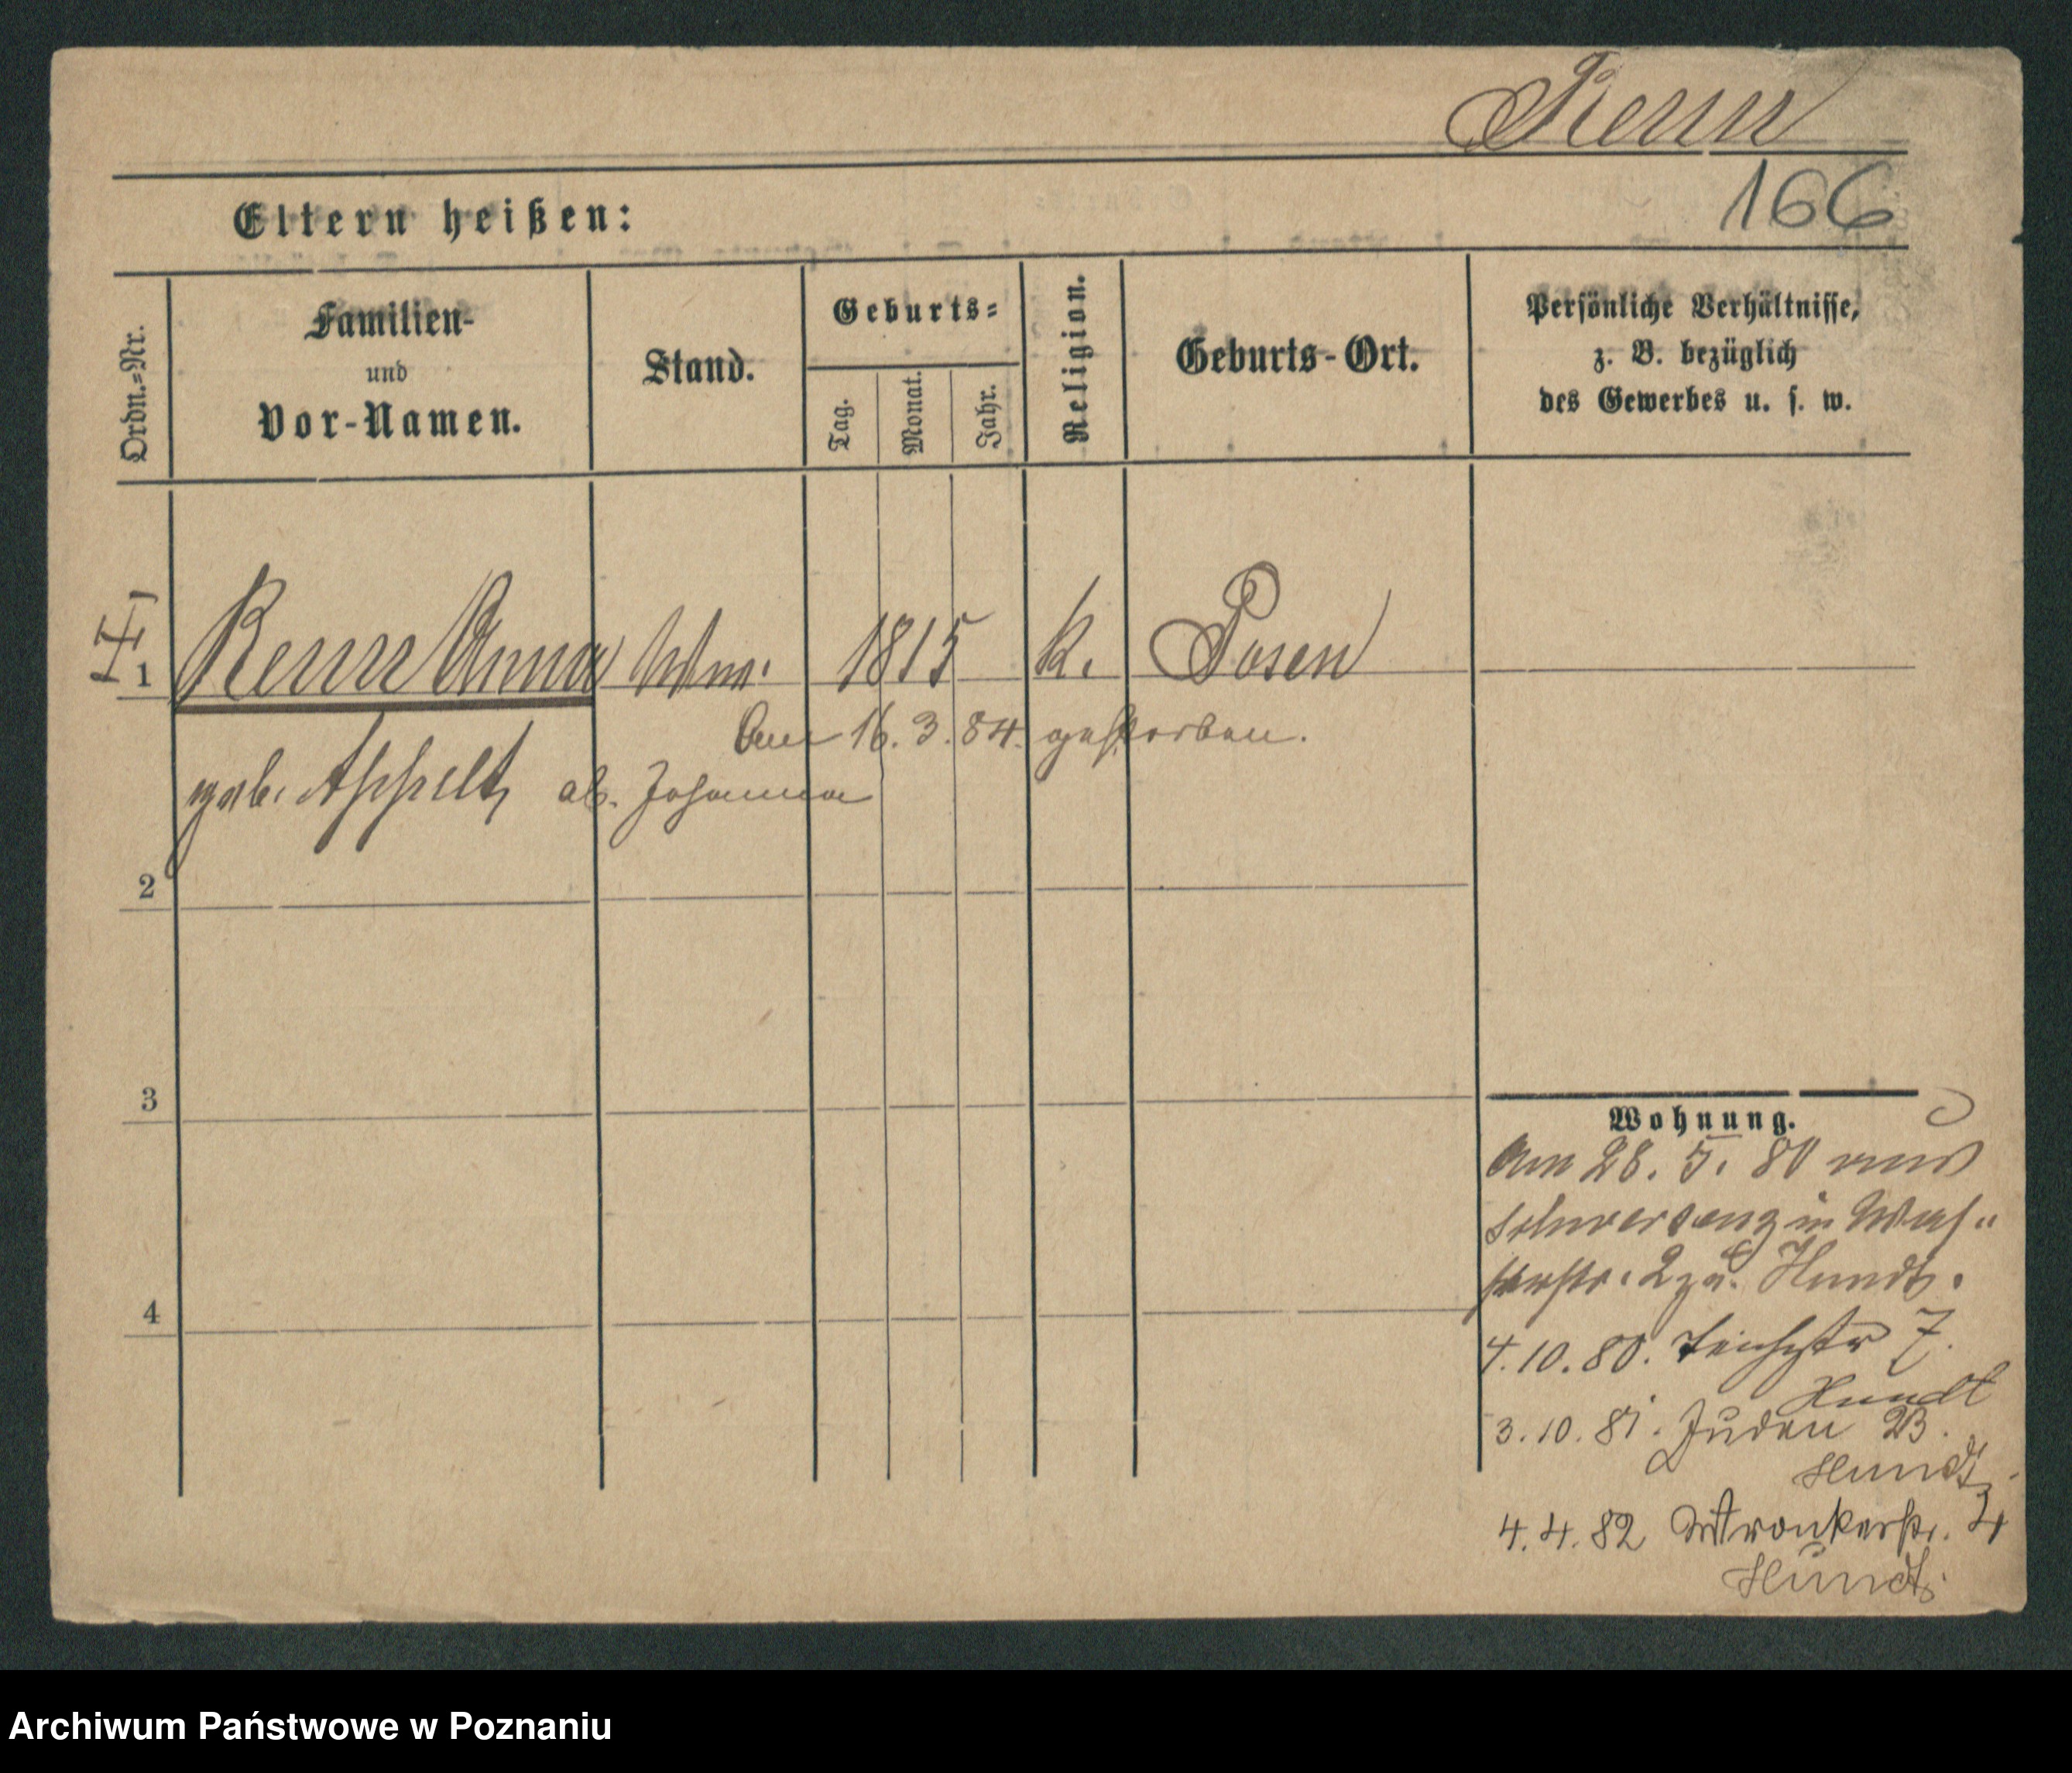 Renn
166
Eltern heißen:
Ordn.=Nr.
Familien-
und
Vor-Namen.
Stand.
Geburts=
Tag.
Monat.
Jahr.
Religion.
Geburts-Ort.
Persönliche Verhältnisse,
z. B. bezüglich
des Gewerbes u. s. w.
1 Renn Anna Wwe. 1815 k. Posen
Am 16. 3. 84. gestorben.
geb. Appelt, Johanna
2
3
4
Wohnung.
Am 28. 5. 80 aus
Schwersenz in Was-
serstr. 2 Hundt.
4. 10. 80. Teichstr 7.
Hundt
3. 10. 81. Juden
Hundt
4. 4. 82 Wronkerstr. 4
Hundt.
Archiwum Państwowe w Poznaniu